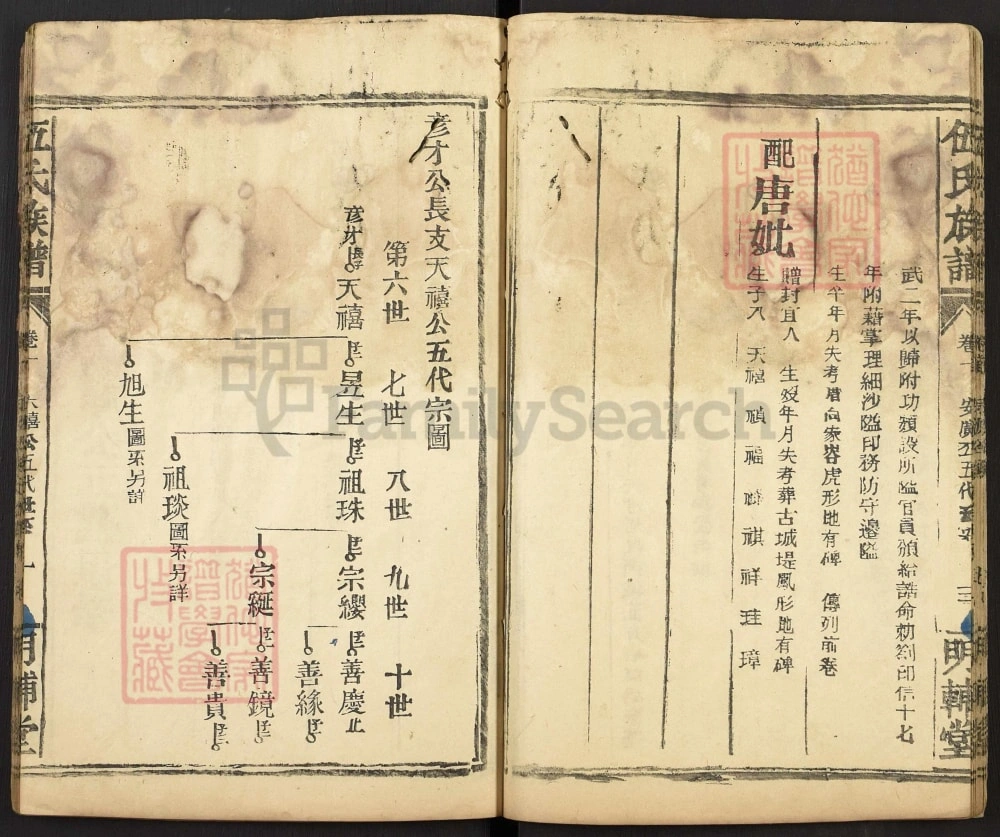 伍氏族譜
卷一
安廣公五代世系
三
明輔堂
武二年以歸附功類設所隘官員頒給誥命勅劄印信十七
年附藉掌理細沙隘印務防守邊隘
生卒年月失考
虎形地有碑
傳列前卷
配唐妣
贈封宜人
生歿年月失考葬古城堤鳳形地有碑
生子八
天禧
禎
福
祺
祥
珪
璋
彦才公長支天禧公五代宗圖
第六世
七世
八世
九世
十世
彦才
天禧
昱生
祖珠
宗纓
善慶止
善緣
宗綖
善鏡
善貴
祖琰圖系另詳
旭生圖系另詳
伍氏族譜
卷一
天禧公五代世系
一
明輔堂
FamilySearch